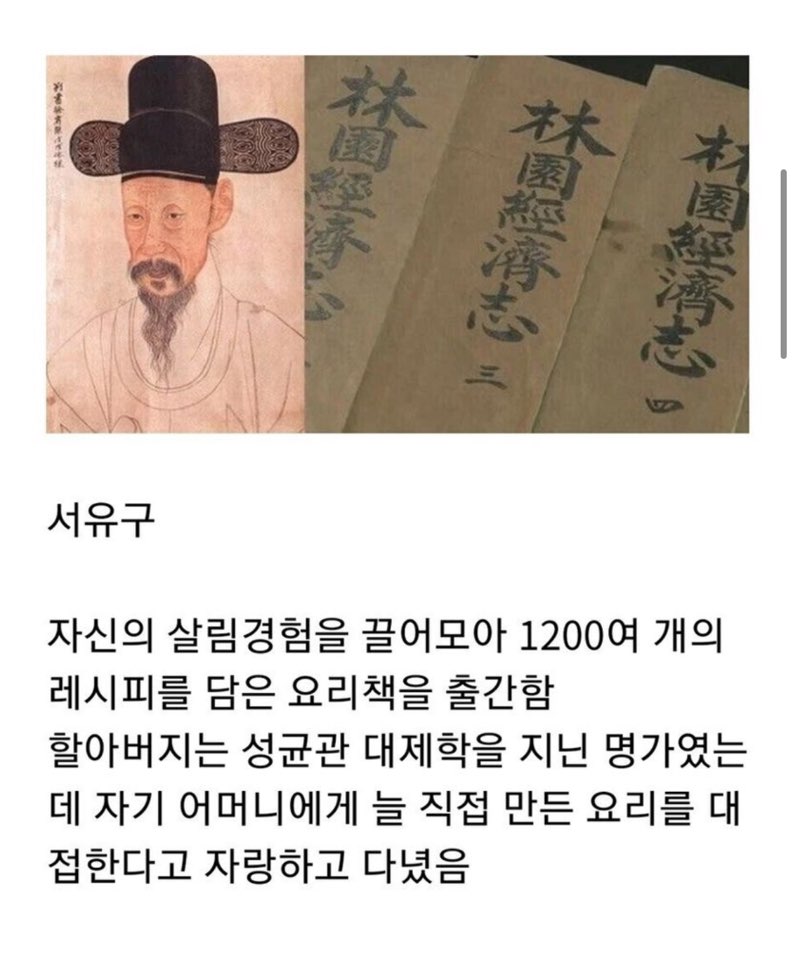 林園經濟志
林園經濟志 三
林園經濟志 四
서유구
자신의 살림경험을 끌어모아 1200여 개의
레시피를 담은 요리책을 출간함
할아버지는 성균관 대제학을 지닌 명가였는
데 자기 어머니에게 늘 직접 만든 요리를 대
접한다고 자랑하고 다녔음